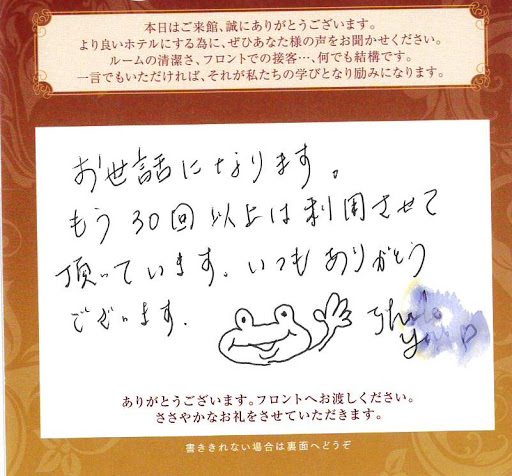 本日はご来館、誠にありがとうございます。
より良いホテルにする為に、ぜひあなた様の声をお聞かせください。
ルームの清潔さ、フロントでの接客…、何でも結構です。
一言でもいただければ、それが私たちの学びとなり励みになります。
お世話になります。
もう30回以上は利用させて
頂っています。いつもありがとう
ございます。
ありがとうございます。フロントへお渡しください。
ささやかなお礼をさせていただきます。
書ききれない場合は裏面へどうぞ